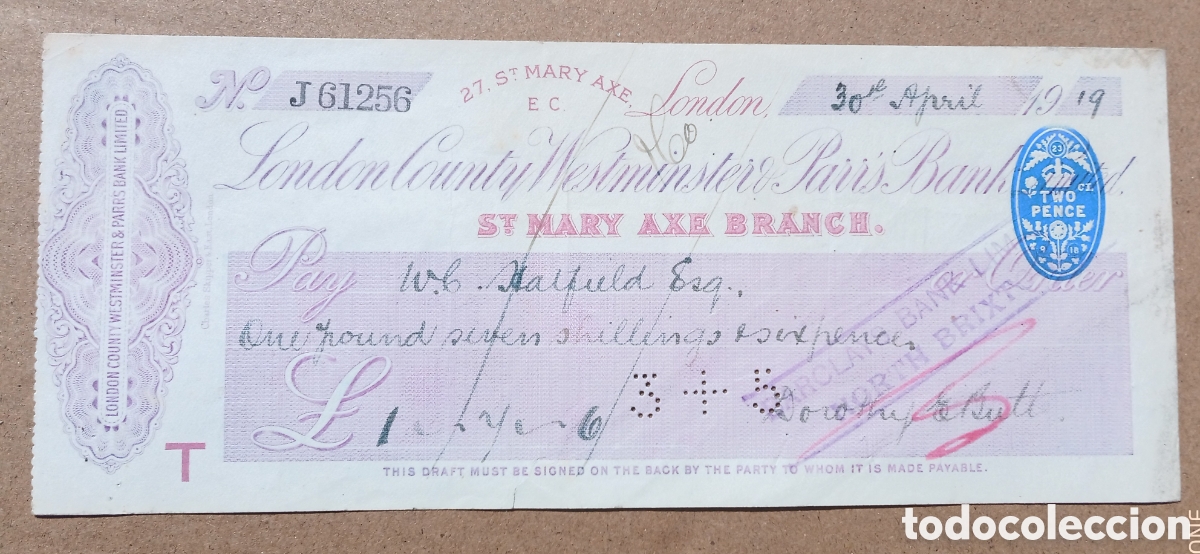 No. J 61256
27, ST MARY AXE,
E C.
London, 30th April 1919
& Co
London County Westminster & Parr's Bank Limited.
ST MARY AXE BRANCH.
Pay W.C. Hatfield Esq. or Order
One pound seven shillings & sixpence.
£ 1 - 7 - 6
3 + 5
Dorothy E Butt
THIS DRAFT MUST BE SIGNED ON THE BACK BY THE PARTY TO WHOM IT IS MADE PAYABLE.
T
LONDON COUNTY WESTMINSTER & PARRS BANK LIMITED.
23
CI.
TWO
PENCE
9 18
BARCLAYS BANK LIM
NORTH BRIXT
todocoleccion
ONE